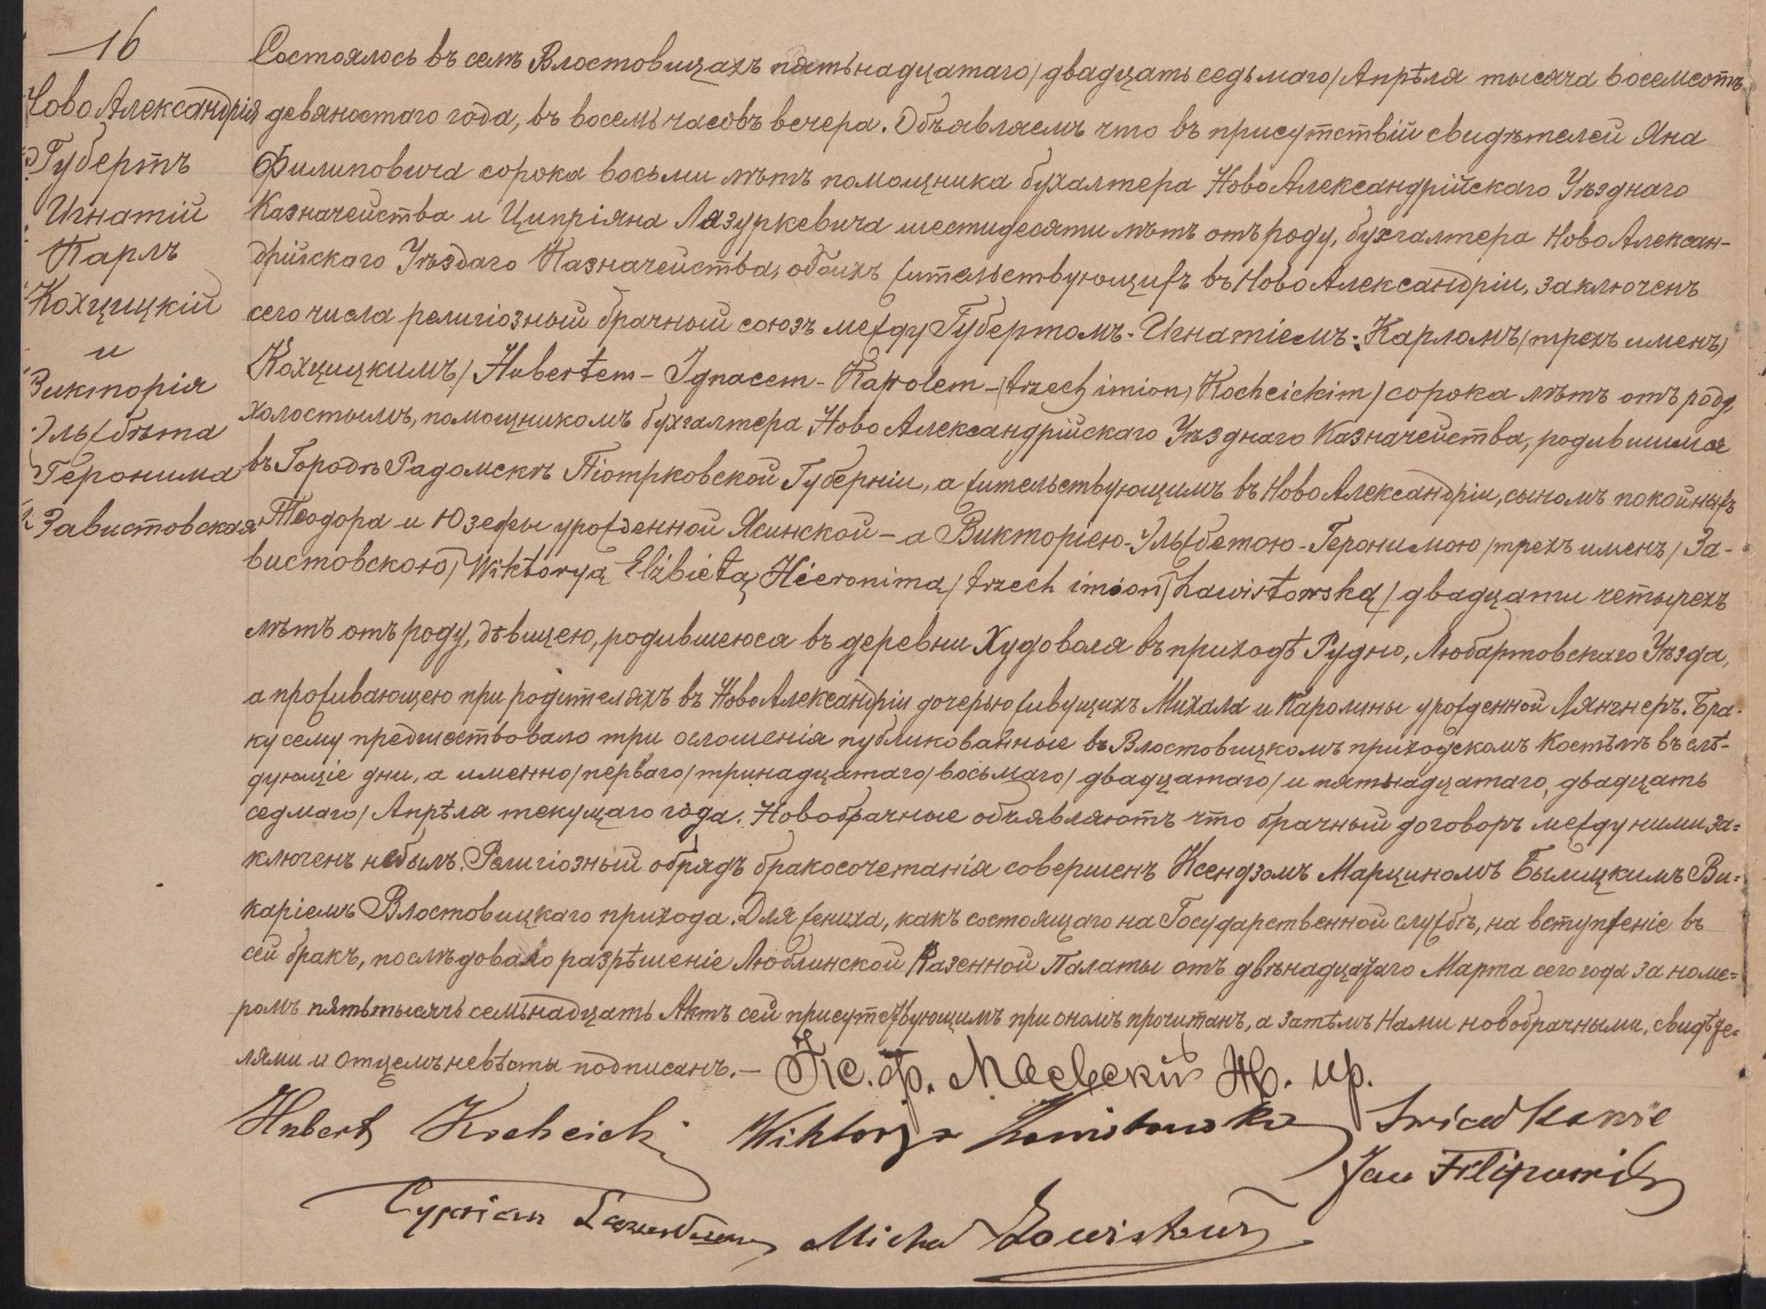 16
НовоАлександрія
Губертъ
Игнатій
Карлъ
Кохцицкій
и
Викторія
Эльжбѣта
Геронима
Завистовская
Состоялось въ семъ Влостовицахъ пятьнадцатаго/двадцать седьмаго/Апрѣля тысяча восемсотъ
девяностаго года, въ восемь часовъ вечера. Объявляемъ что въ присутствій свидѣтелей Яна
Филиповича сорока восьми лѣтъ помощника бухалтера НовоАлександрійскаго Уѣзднаго
Казначейства и Ципріяна Лазуркевича шестидесяти лѣтъ отъ роду, бухгалтера НовоАлексан-
дрійскаго Уѣздаго Казначейства, обоихъ жительствующихъ въ НовоАлександріи, заключенъ
сего числа религіозный брачный союзъ между Губертомъ-Игнатіемъ-Карломъ/трехъ именъ/
Кохцицкимъ/Hubertem-Ignacem-Karolem-/trzech imion/Kochcickim/сорока лѣтъ отъ роду,
холостымъ, помощникомъ бухгалтера НовоАлександрійскаго Уѣзднаго Казначейства, родившимся
въ Городѣ Радомскѣ Піотрковской Губерніи, а жительствующимъ въ НовоАлександріи, сыномъ покойныхъ
Теодора и Юзефы урожденной Ясинской - а Викторіею-Эльжбетою-Геронимою/трехъ именъ/За-
вистовскою/Wiktoryą Elżbietą Hieronimą/trzech imion/Zawistowską/двадцати четырехъ
лѣтъ отъ роду, дѣвицею, родившеюся въ деревни Худоволя въ приходѣ Рудно, Любартовскаго Уѣзда,
а проживающею при родителяхъ въ НовоАлександріи дочерью живущихъ Михала и Каролины урожденной Лянгнеръ. Бра-
ку сему предшествовало три оглошенія публикованные въ Влостовицкомъ приходскомъ костѣлѣ въ слѣ-
дующіе дни, а именно/перваго/тринадцатаго/восьмаго/двадцатаго/и пятьнадцатаго, двадцать
седмаго/Апрѣля текущаго года. Новобрачные объявляютъ что брачный договоръ между ними за=
ключенъ небылъ. Религіозный обрядъ бракосочетанія совершенъ Ксендзомъ Марциномъ Былицкимъ Ви=
каріемъ Влостовицкаго прихода. Для жениха, какъ состоящаго на Государственной службѣ, на вступленіе въ
сей бракъ, послѣдовало разрѣшеніе Люблинской Казенной Палаты отъ двѣнадцатаго Марта сего года за номе=
ромъ пятьтысячъ семьнадцать Актъ сей присутствующимъ при ономъ прочитанъ, а затѣмъ Нами новобрачными, свидѣте=
лями и отцемъ невѣсты подписанъ.—
Кс. Ф. Маевскій
Hubert Kochcicki Wiktorya Zawistowska Świadkowie
Jan Filipowicz
Cyprian Michał Zawistowski